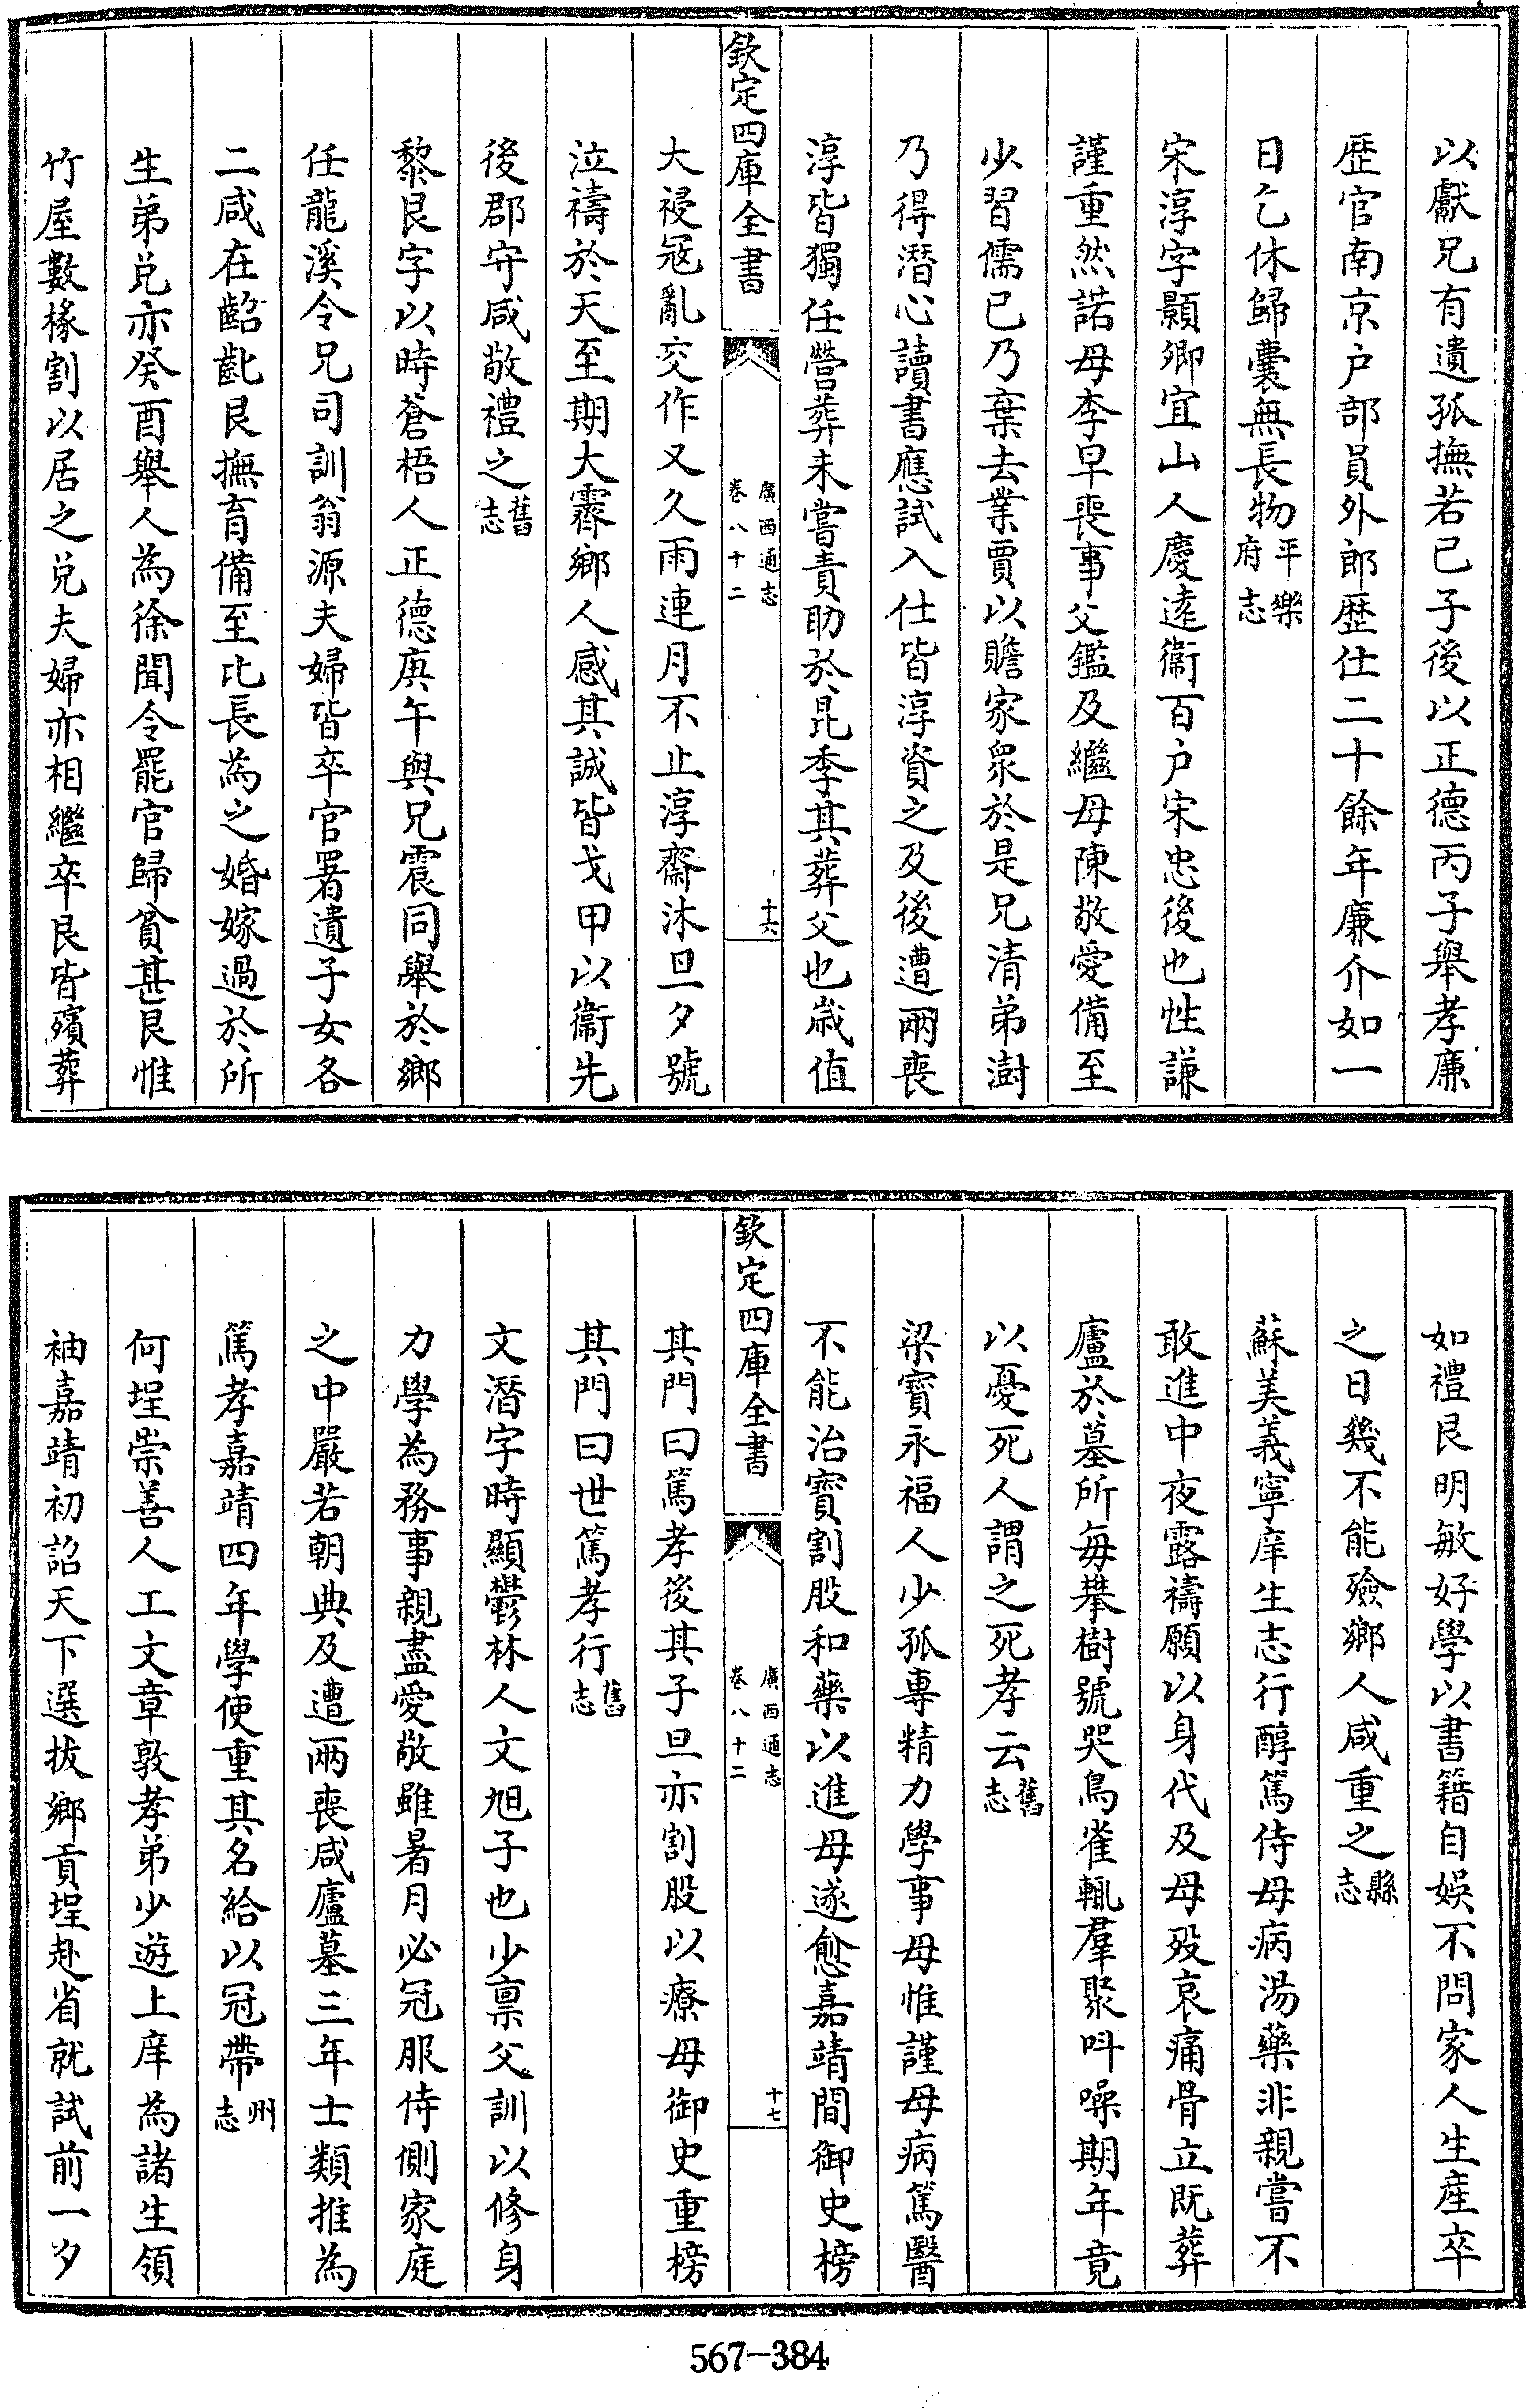 以獻兄有遺孤撫若已子後以正德丙子舉孝廉
歴官南京户部員外郎歴仕二十餘年廉介如一
日乞休歸囊無長物平樂府志
宋淳字顥卿宜山人慶逺衞百户宋忠後也性謙
謹重然諾母李早喪事父鑑及繼母陳敬愛備至
少習儒已乃棄去業賈以贍家衆於是兄清弟澍
乃得潛心讀書應試入仕皆淳資之及後遭兩喪
淳皆獨任營葬未嘗責助於昆季其葬父也歳值
欽定四庫全書
廣西通志
卷八十二
十六
大祲冦亂交作又久雨連月不止淳齋沐旦夕號
泣禱於天至期大霽鄉人感其誠皆戈甲以衞先
後郡守咸敬禮之舊志
黎艮字以時蒼梧人正德庚午與兄震同舉於鄉
任龍溪令兄司訓翁源夫婦皆卒官署遺子女各
二咸在齠齔艮撫育備至比長為之婚嫁過於所
生弟兌亦癸酉舉人為徐聞令罷官歸貧甚艮惟
竹屋數椽割以居之兌夫婦亦相繼卒艮皆殯葬
如禮艮明敏好學以書籍自娛不問家人生產卒
之日幾不能殮鄉人咸重之縣志
蘇美義寧庠生志行醇篤侍母病湯藥非親嘗不
敢進中夜露禱願以身代及母歿哀痛骨立既葬
廬於墓所每攀樹號哭鳥雀輒羣聚呌噪期年竟
以憂死人謂之死孝云舊志
梁寶永福人少孤專精力學事母惟謹母病篤醫
不能治寶割股和藥以進母遂愈嘉靖間御史榜
欽定四庫全書
廣西通志
卷八十二
十七
其門曰篤孝後其子旦亦割股以療母御史重榜
其門曰世篤孝行舊志
文潛字時顯鬱林人文旭子也少禀父訓以修身
力學為務事親盡愛敬雖暑月必冠服侍側家庭
之中嚴若朝典及遭兩喪咸廬墓三年士類推為
篤孝嘉靖四年學使重其名給以冠帶州志
何埕崇善人工文章敦孝弟少遊上庠為諸生領
袖嘉靖初詔天下選拔鄉貢埕赴省就試前一夕
567-384